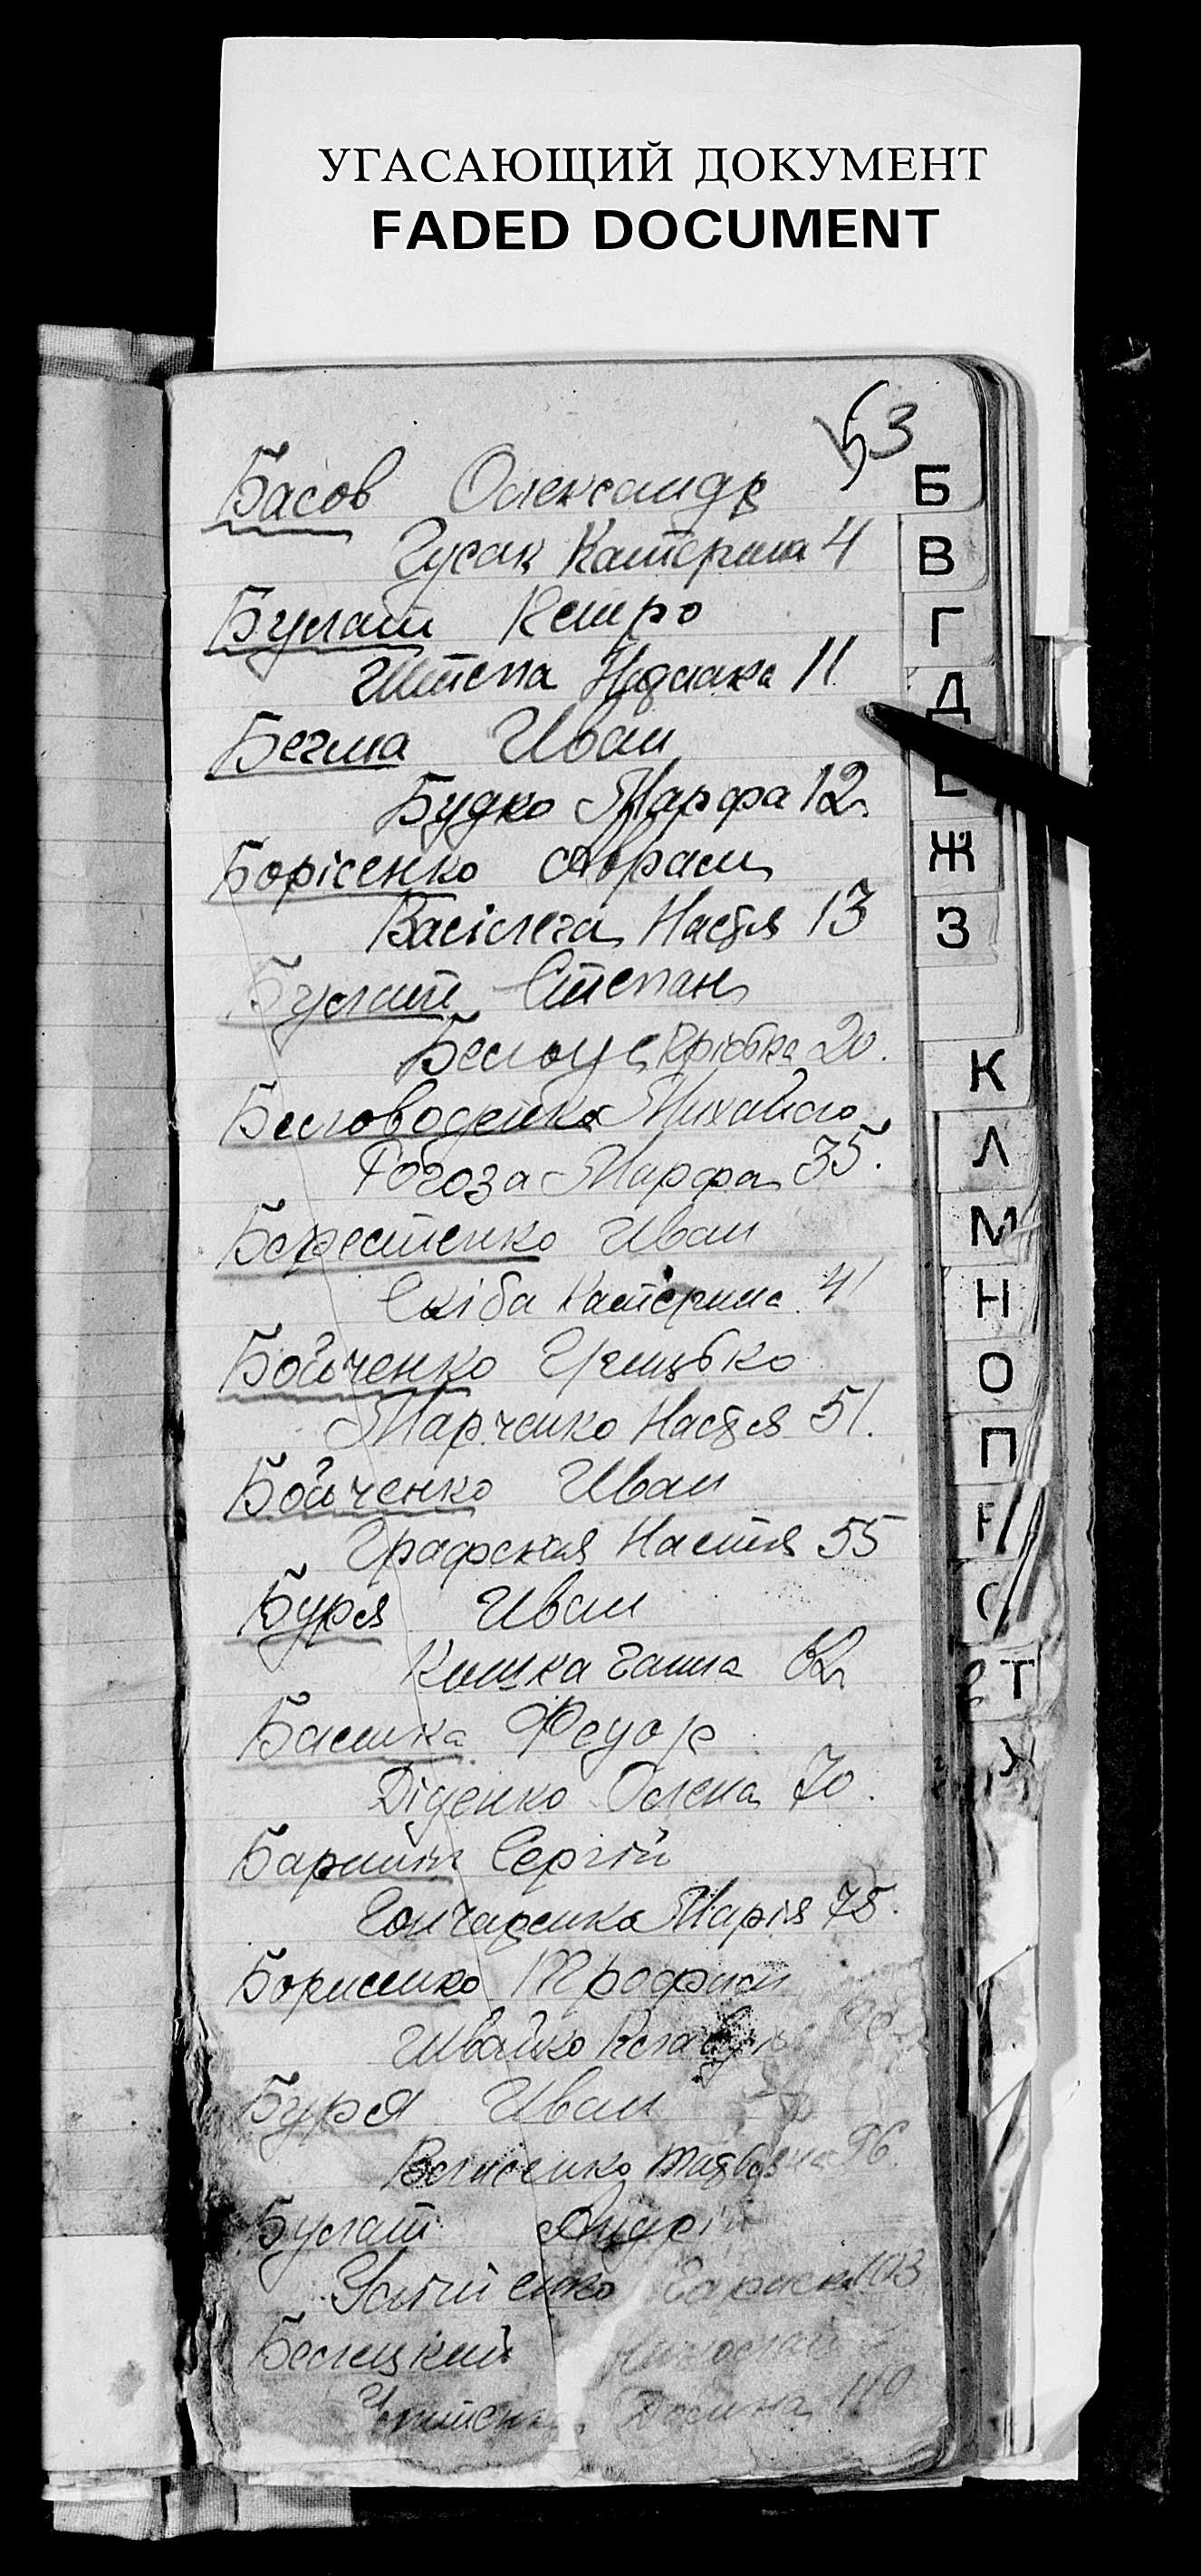 УГАСАЮЩИЙ ДОКУМЕНТ
FADED DOCUMENT
53
Басов Олександр
Гусак Катерина 4
Булат Петро
Штепа Одарка 11
Бегма Иван
Будко Марфа 12
Борісенко Аврам
Васілега Настя 13
Булат Степан
Белоус Прісбка 20.
Беловоденко Михайло
Рогоза Марфа 35.
Берестенко Иван
Скіба Катерина 41
Бойченко Грицько
Марченко Настя 51.
Бойченко Иван
Графская Настя 55
Буря Иван
Кишка Ганна 62
Башка Федор
Діденко Олена 70.
Барміт Сергій
Гончаренко Марія 75.
Борисенко Трофим
Швайко
Буря Иван
Велисенко 96.
Булат Андрій
103
Белецкий Николай
110
Б
В
Г
Д
Е
Ж
З
К
Л
М
Н
О
П
Р
С
Т
У